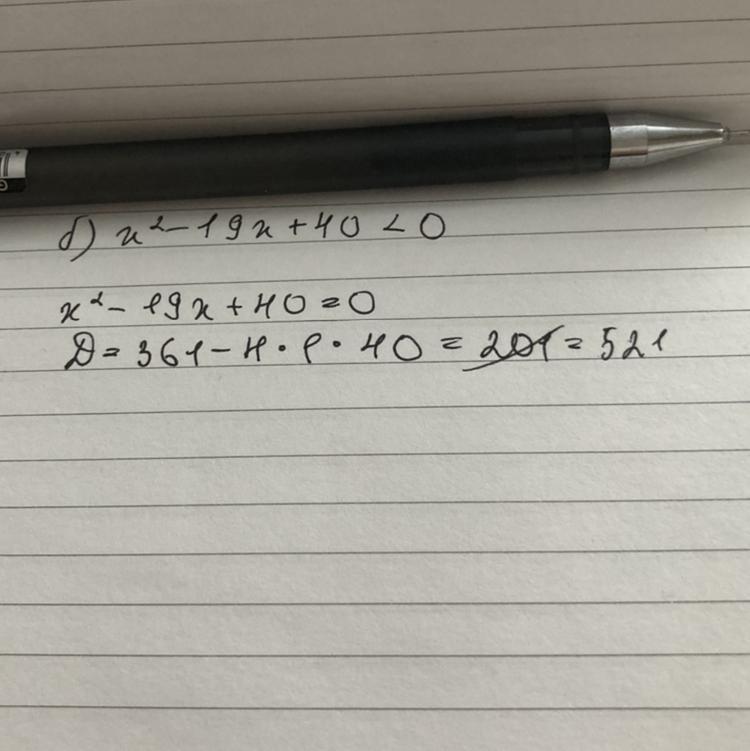 б) x² - 19x + 40 < 0
x² - 19x + 40 = 0
D = 361 - 4 · 1 · 40 = 201 = 521